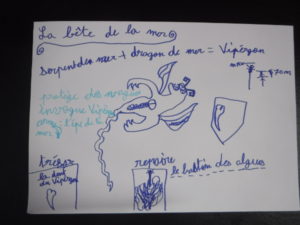 La bête de la mer
serpent des mers + dragon de mer = Vipérzon
$70m
protège des
Vipér
arme : l'épée de
mer
trésor
la dent
du Vipérzon
repaire
le bastion des algues